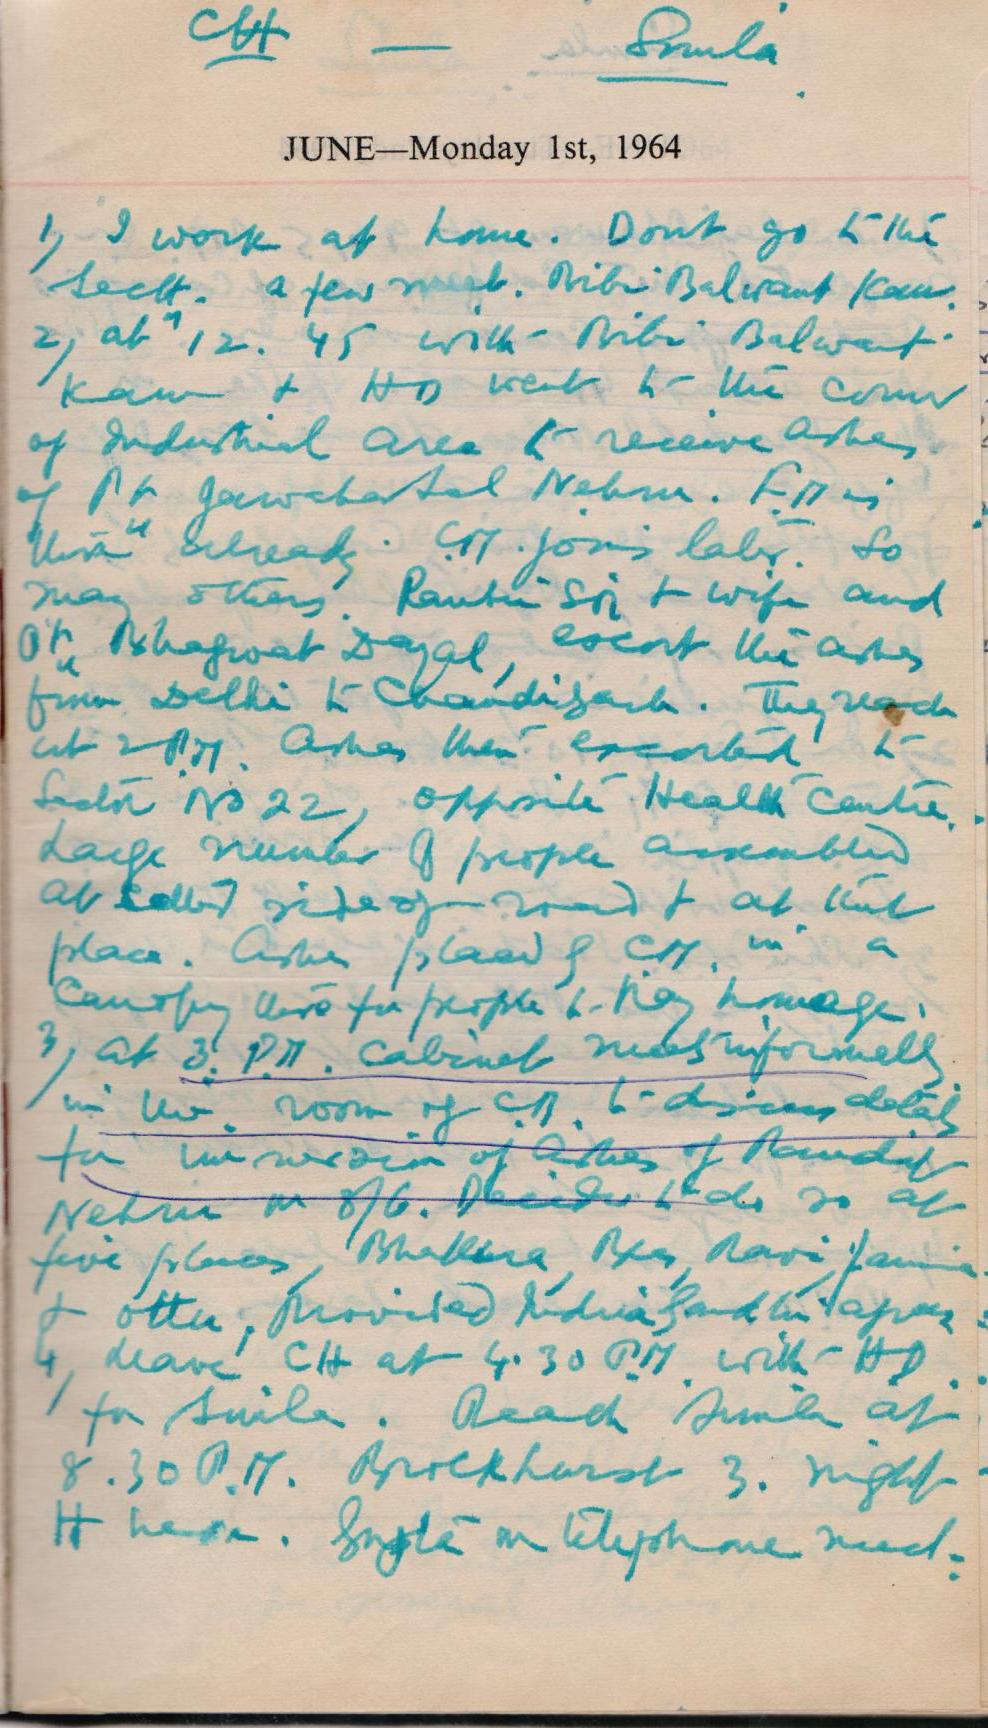 CH — Simla
JUNE—Monday 1st, 1964
1, I work at home. Dont go to the
Sectt. a few meet. Bibi Balwant Kaur.
2, at 12.45 with Bibi Balwant
Kaur & HD went to the corner
of Industrial area to receive ashes
of Pt Jawahar Lal Nehru. F.M is
there already. C.M. joins later. So
many others. & wife and
Pt Bhagwat Dayal, escort the ashes
from Delhi to Chandigarh. They reach
at 2 P.M. Ashes then escorted to
Sector No 22, opposite Health Centre.
Large number of people assembled
at side of road & at that
place. Ashes placed by C.M. in a
Canopy there for people to pay homage.
3, at 3. P.M. Cabinet meets informally
in the room of C.M. to discuss details
for immersion of ashes of Pandit
Nehru on 8/6. Decide to do so at
five places, Bhakhra, Beas, Ravi, Jamna
& other, Provided Indira Gandhi agrees
4, Leave CH at 4.30 P.M. with HD.
for Simla. Reach Simla at
8.30 P.M. Brockhurst 3. night
H here. on telephone